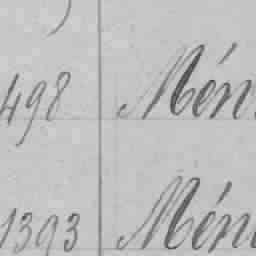 498 Mén
1393 Mén